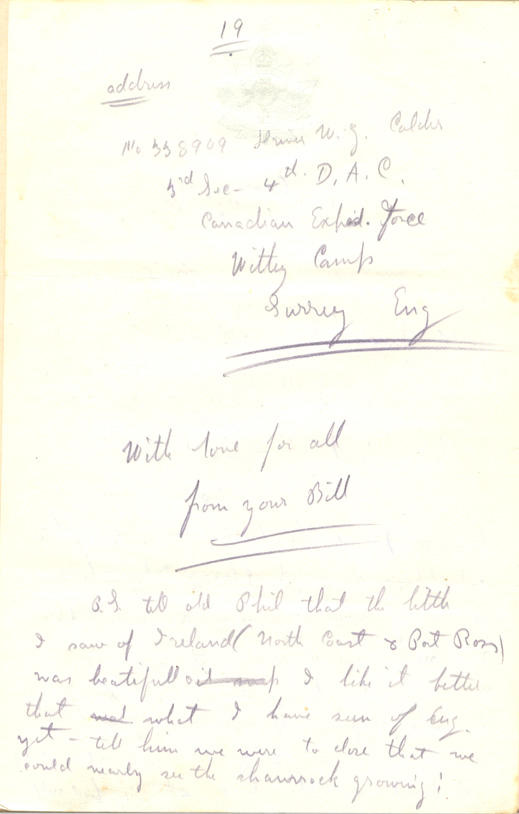 19
address
No 338909 Driver W. G. Calder
3rd Sec - 4th D. A. C.
Canadian Exped. Force
Witley Camp
Surrey Eng
With love for all
from your Bill
P.S. tell old Phil that the little
I saw of Ireland (North Coast & Port Ross)
was beatifull I like it better
that what I have seen of Eng.
yet - tell him we were to close that we
could nearly see the shamrock growing!